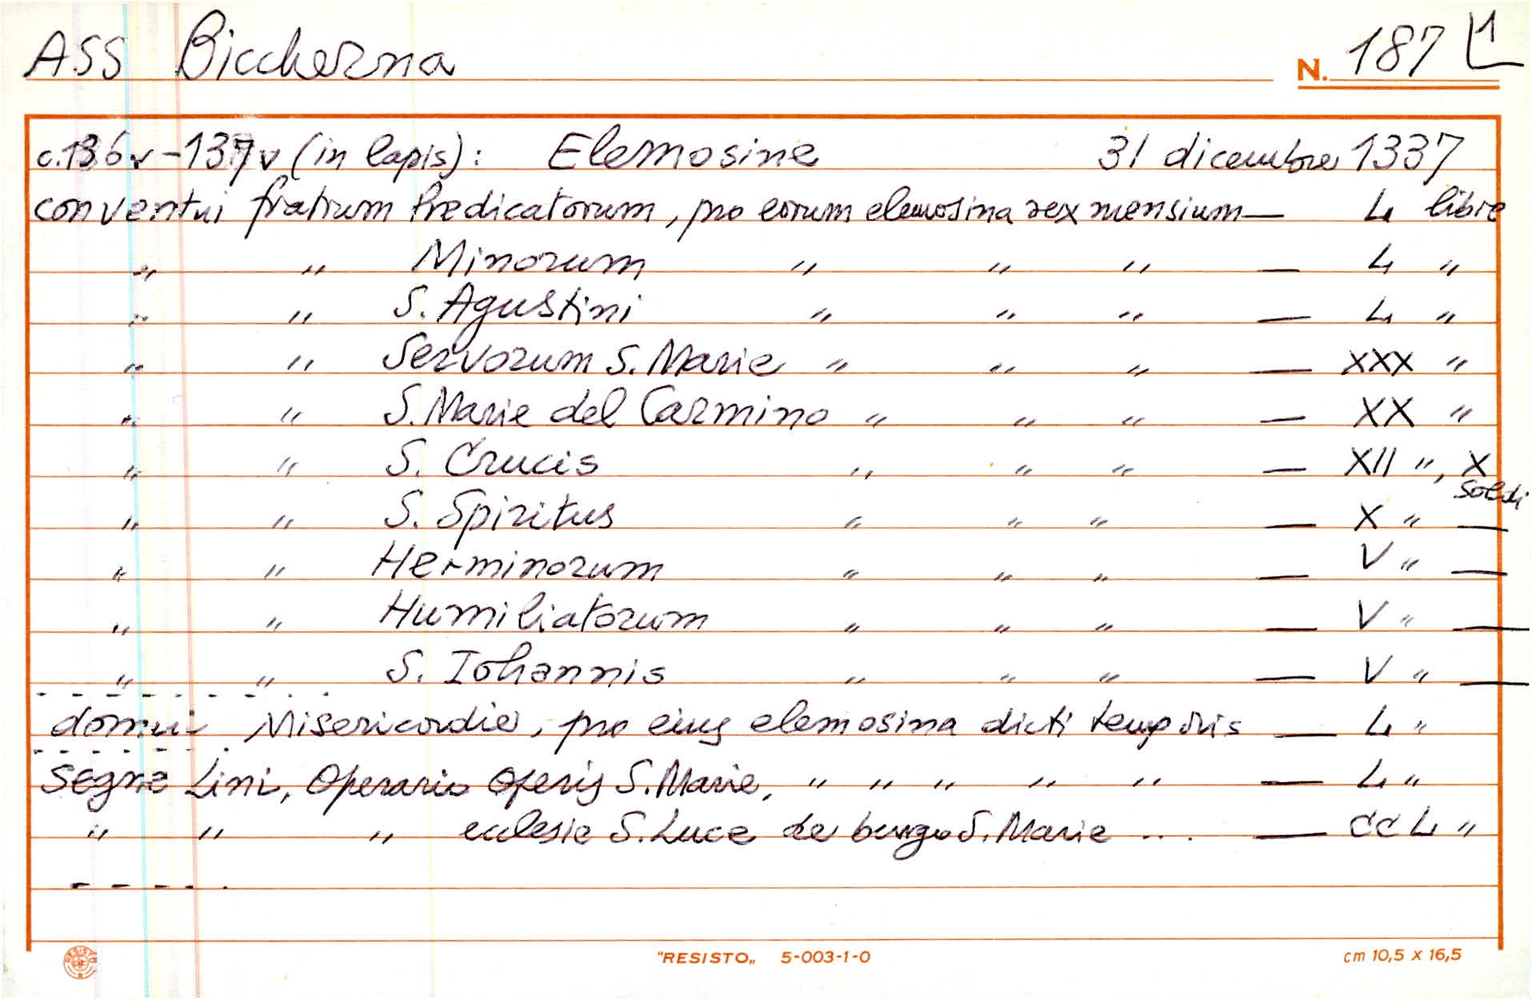 ASS Biccherna N. 187 1
c. 136v-137v (in lapis): Elemosine 31 dicembre 1337
conventui fratrum Predicatorum, pro eorum elemosina sex mensium — L libre
" " Minorum " " " — L "
" " S. Agustini " " " — L "
" " Servorum S. Marie " " " — XXX "
" " S. Marie del Carmino " " " — XX "
" " S. Crucis " " " — XII ", X soldi
" " S. Spiritus " " " — X " —
" " Herminorum " " " — V " —
" " Humiliatorum " " " — V " —
" " S. Iohannis " " " — V " —
- - - - - - - - . .
domui Misericordie, pro eius elemosina dicti temporis — L "
- - - - - - .
Segne Lini, Operario Operis S. Marie, " " " " " — L "
" " " ecclesie S. Luce de burgo S. Marie ... . — CC L "
- - - - .
RESISTO "RESISTO„ 5-003-1-0 cm 10,5 x 16,5